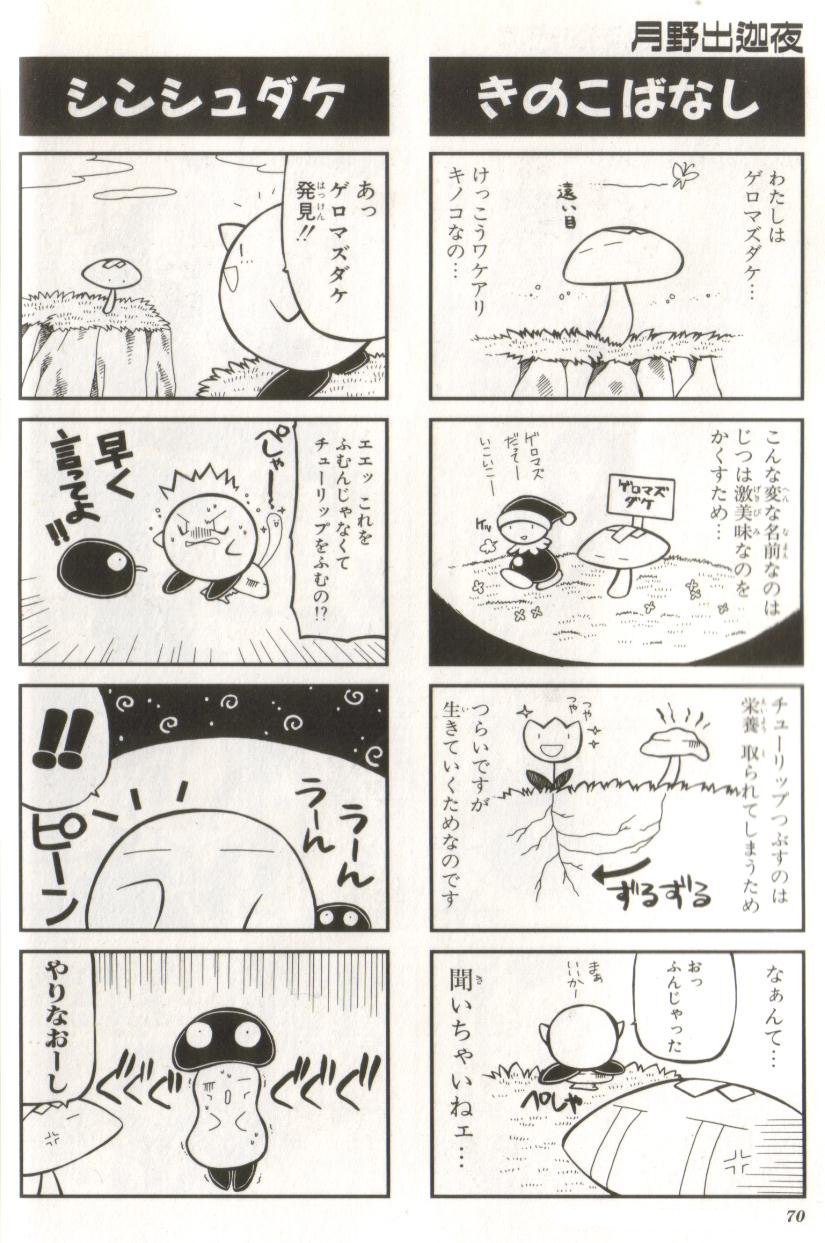 月野出迦夜
きのこばなし
わたしは
ゲロマズダケ…
けっこうワケアリ
キノコなの…
遠い目
こんな変な名前なのは
じつは激美味なのを
かくすため…
ゲロマズ
ダケ
ゲロマズ
だってー
いこいこー
チューリップつぶすのは
栄養 取られてしまうため
つやつや
つらいですが
生きていくためなのです
ずるずる
なぁんて…
おっ
ふんじゃった
まぁ
いいかー
ぺしゃ
聞いちゃいねェ…
シンシュダケ
あっ
ゲロマズダケ
発見!!
ぺしゃー
エエッ これを
ふむんじゃなくて
チューリップをふむの!?
早く
言ってよ
!!
うーん
うーん
!!
ピーン
ぐぐぐ
ぐぐぐ
やりなおーし
70